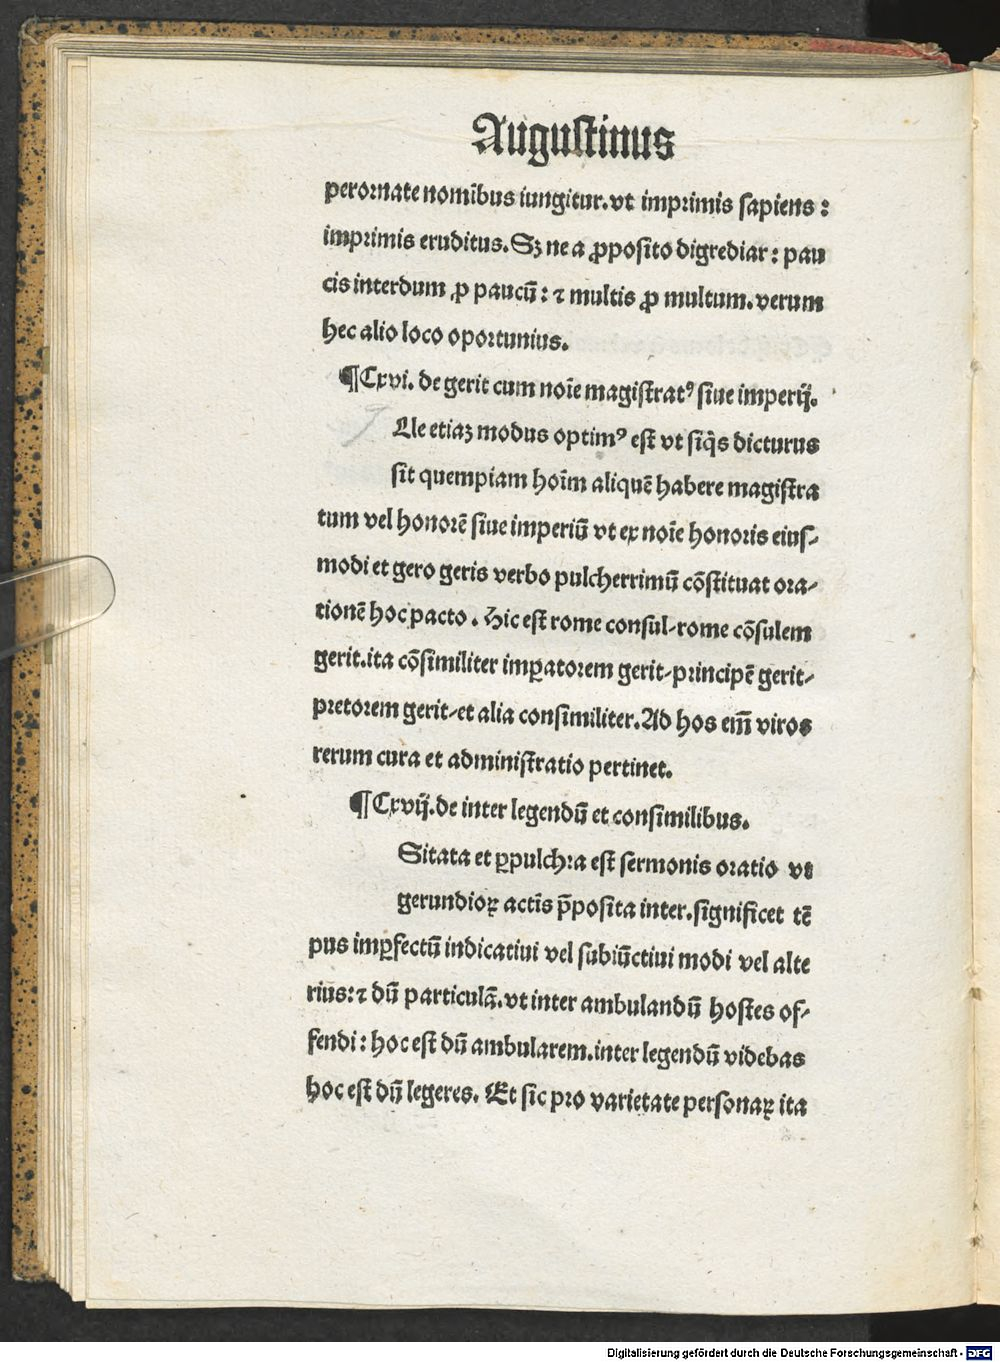 Augustinus
perornate nomībus iungitur.vt imprimis sapiens:
imprimis eruditus.Sꝫ ne a ꝓposito digrediar: pau
cis interdum ꝓ paucū: ⁊ multis ꝓ multum.verum
hec alio loco oportunius.
¶Cxvi. de gerit cum noīe magistratꝰ siue imperij.
Lle etiaꝫ modus optimꝰ est vt siq̄s dicturus
sit quempiam hoīm aliquē habere magistra
tum vel honorē siue imperiū vt ex noīe honoris eius⸗
modi et gero geris verbo pulcherrimū cōstituat ora⸗
tionē hoc pacto. Hic est rome consul⸗rome cōsulem
gerit.ita cōsimiliter imꝑatorem gerit⸗principē gerit⸗
pretorem gerit⸗et alia consimiliter.Ad hos em̄ viros
rerum cura et administratio pertinet.
¶Cxvij.de inter legendū et consimilibus.
Sitata et ꝑpulchra est sermonis oratio vt
gerundioꝝ actīs p̄posita inter.significet tē
pus imꝑfectū indicatiui vel subiūctiui modi vel alte
rius:⁊ dū particulā.vt inter ambulandū hostes of⸗
fendi: hoc est dū ambularem.inter legendū videbas
hoc est dū legeres. Et sic pro varietate personaꝝ ita
Digitalisierung gefördert durch die Deutsche Forschungsgemeinschaft - DFG